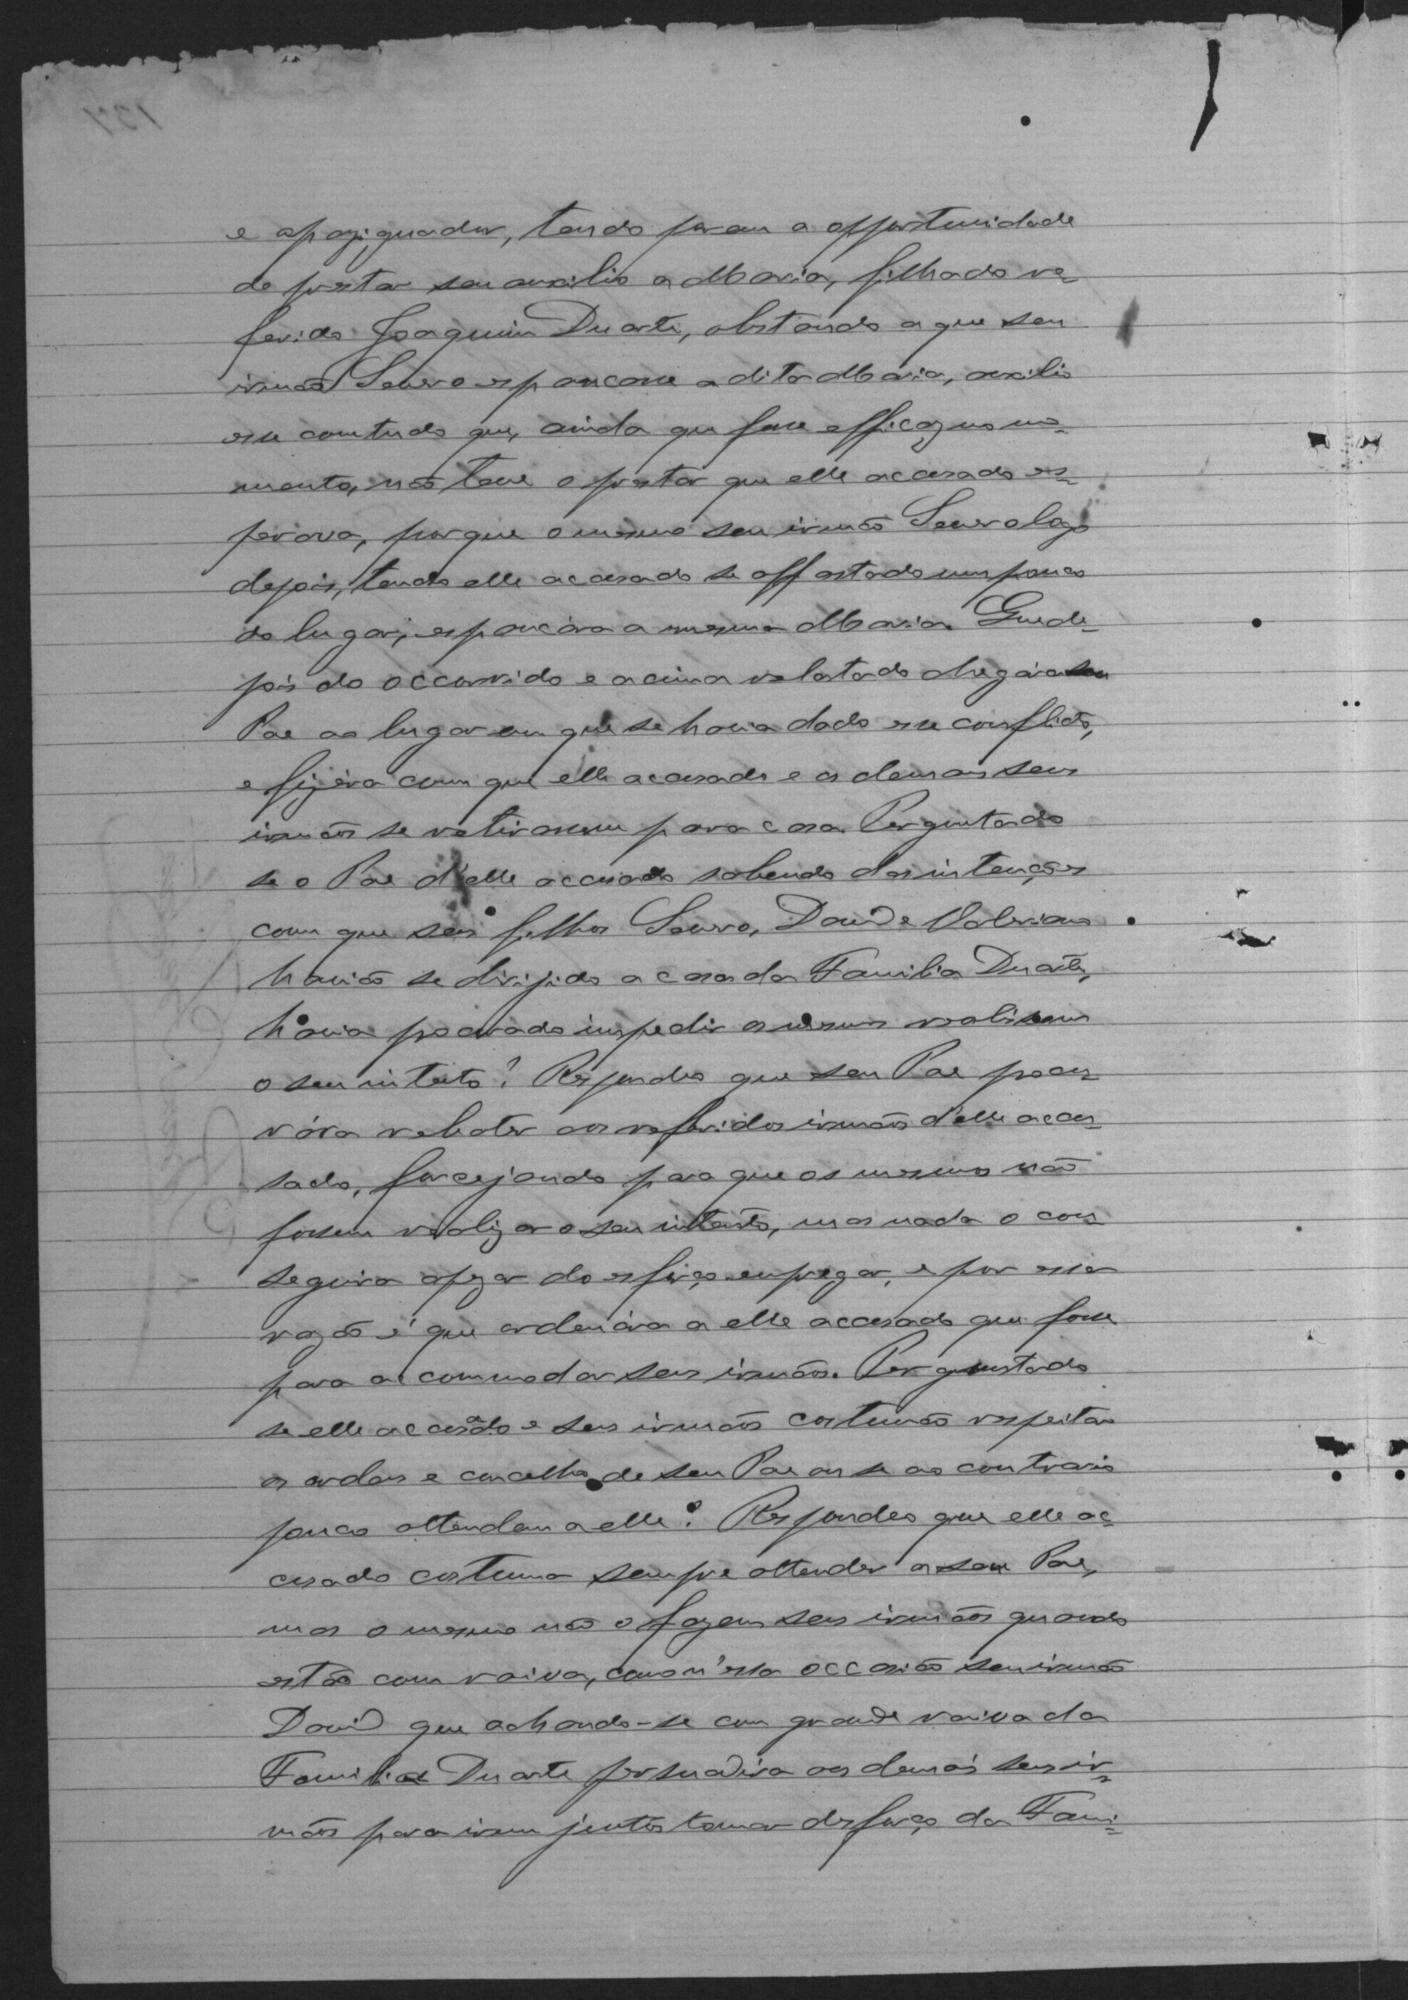 e apaziguador, tendo porem a opportunidade
de prestar seu auxilio a Maria, filha do re-
ferido Joaquim Duarte, obstando a que seu
irmão Severo espancasse a dita Maria, auxilio
esse comtudo que, ainda que fosse efficaz no mo-
mento, não teve o prestar que elle accusado es-
perava, porque o mesmo seu irmão Severo logo
depois, tendo elle accusado se affastado um pouco
do lugar, espancára a mesma Maria. Que de-
pois do occorrido e acima relatado chegára seu
Pae ao lugar em que se havia dado esse conflicto,
e fizéra com que elle accusado e os demais seus
irmãos se retirassem para casa. Perguntado
se o Pae d'elle accusado sabendo das intenções
com que seus filhos Severo, David e Valeriano
havião se dirigido a casa da Familia Duarte,
havia procurado impedir os mesmos realisem
o seu intento? Respondeo que seu Pae procu-
rára rebater aos referidos irmãos d'elle accu-
sado, forcejando para que os mesmos não
fossem realizar o seu intento, mas nada o con-
seguira apezar do esforço empregar, e por essa
razão é que ordenára a elle accusado que fosse
para accommodar seus irmãos. Perguntado
se elle accusado e seus irmãos costumão respeitar
as ordens e concelhos de seu Pae ou se ao contrario
pouco attendem a elle? Respondeo que elle ac-
cusado costuma sempre attender a seu Pae,
mas o mesmo não o fazem seus irmãos quando
estão com raiva, como n'essa occasião seu irmão
David que achando-se com grande raiva da
Familia Duarte persuadira aos demais seus ir-
mãos para irem juntos tomar desforço da Fami-